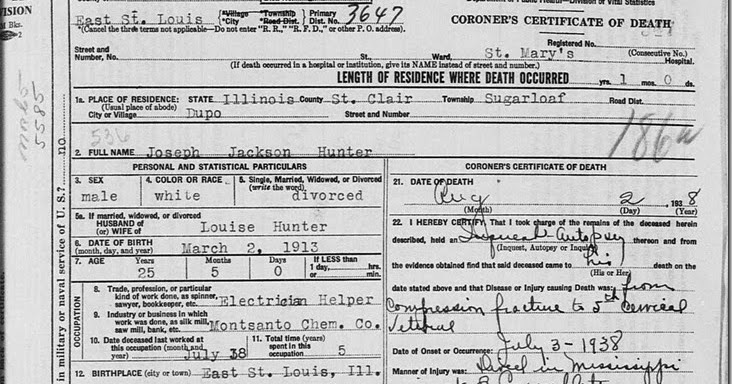 VISION
M Bks.
Department of Public Health—Division of Vital Statistics
East St. Louis *Village *Township Primary 3647
*City *Road Dist. Dist. No.
CORONER'S CERTIFICATE OF DEATH
*(Cancel the three terms not applicable—Do not enter "R. R.," "R. F. D.," or other P. O. address).
Registered No.
(Consecutive No.)
Street and
Number, No. St., Ward, St. Mary's Hospital.
(If death occurred in a hospital or institution, give its NAME instead of street and number.)
LENGTH OF RESIDENCE WHERE DEATH OCCURRED yrs. 1 mos. 0 ds.
1a. PLACE OF RESIDENCE: STATE Illinois County St. Clair Township Sugarloaf Road Dist.
(Usual place of abode)
City or Village Dupo Street and Number
536
2. FULL NAME Joseph Jackson Hunter
PERSONAL AND STATISTICAL PARTICULARS
3. SEX 4. COLOR OR RACE 5. Single, Married, Widowed, or Divorced
(write the word)
male white divorced
5a. If married, widowed, or divorced
HUSBAND of
(or) WIFE of Louise Hunter
6. DATE OF BIRTH
(month, day, and year) March 2, 1913
7. AGE Years Months Days If LESS than
1 day, hrs.
or min.
25 5 0
OCCUPATION
8. Trade, profession, or particular
kind of work done, as spinner,
sawyer, bookkeeper, etc. Electrician Helper
9. Industry or business in which
work was done, as silk mill,
saw mill, bank, etc. Montsanto Chem. Co.
10. Date deceased last worked at
this occupation (month and
year) July 38
11. Total time (years)
spent in this
occupation 5
12. BIRTHPLACE (city or town) East St. Louis, Ill.
CORONER'S CERTIFICATE OF DEATH
21. DATE OF DEATH Aug 2, 1938
(Month) (Day) (Year)
22. I HEREBY CERTIFY That I took charge of the remains of the deceased herein
described, held an Inquest-Autopsy thereon and from
(Inquest, Autopsy or Inquiry)
the evidence obtained find that said deceased came to his death on the
(His or Her)
date stated above and that Disease or Injury causing Death was: from
Compression fracture to 5th Cervical
Date of Onset or Occurrence: July 3-1938
Manner of Injury was: Dived in Mississippi
in military or naval service of U. S.?
no.
5585